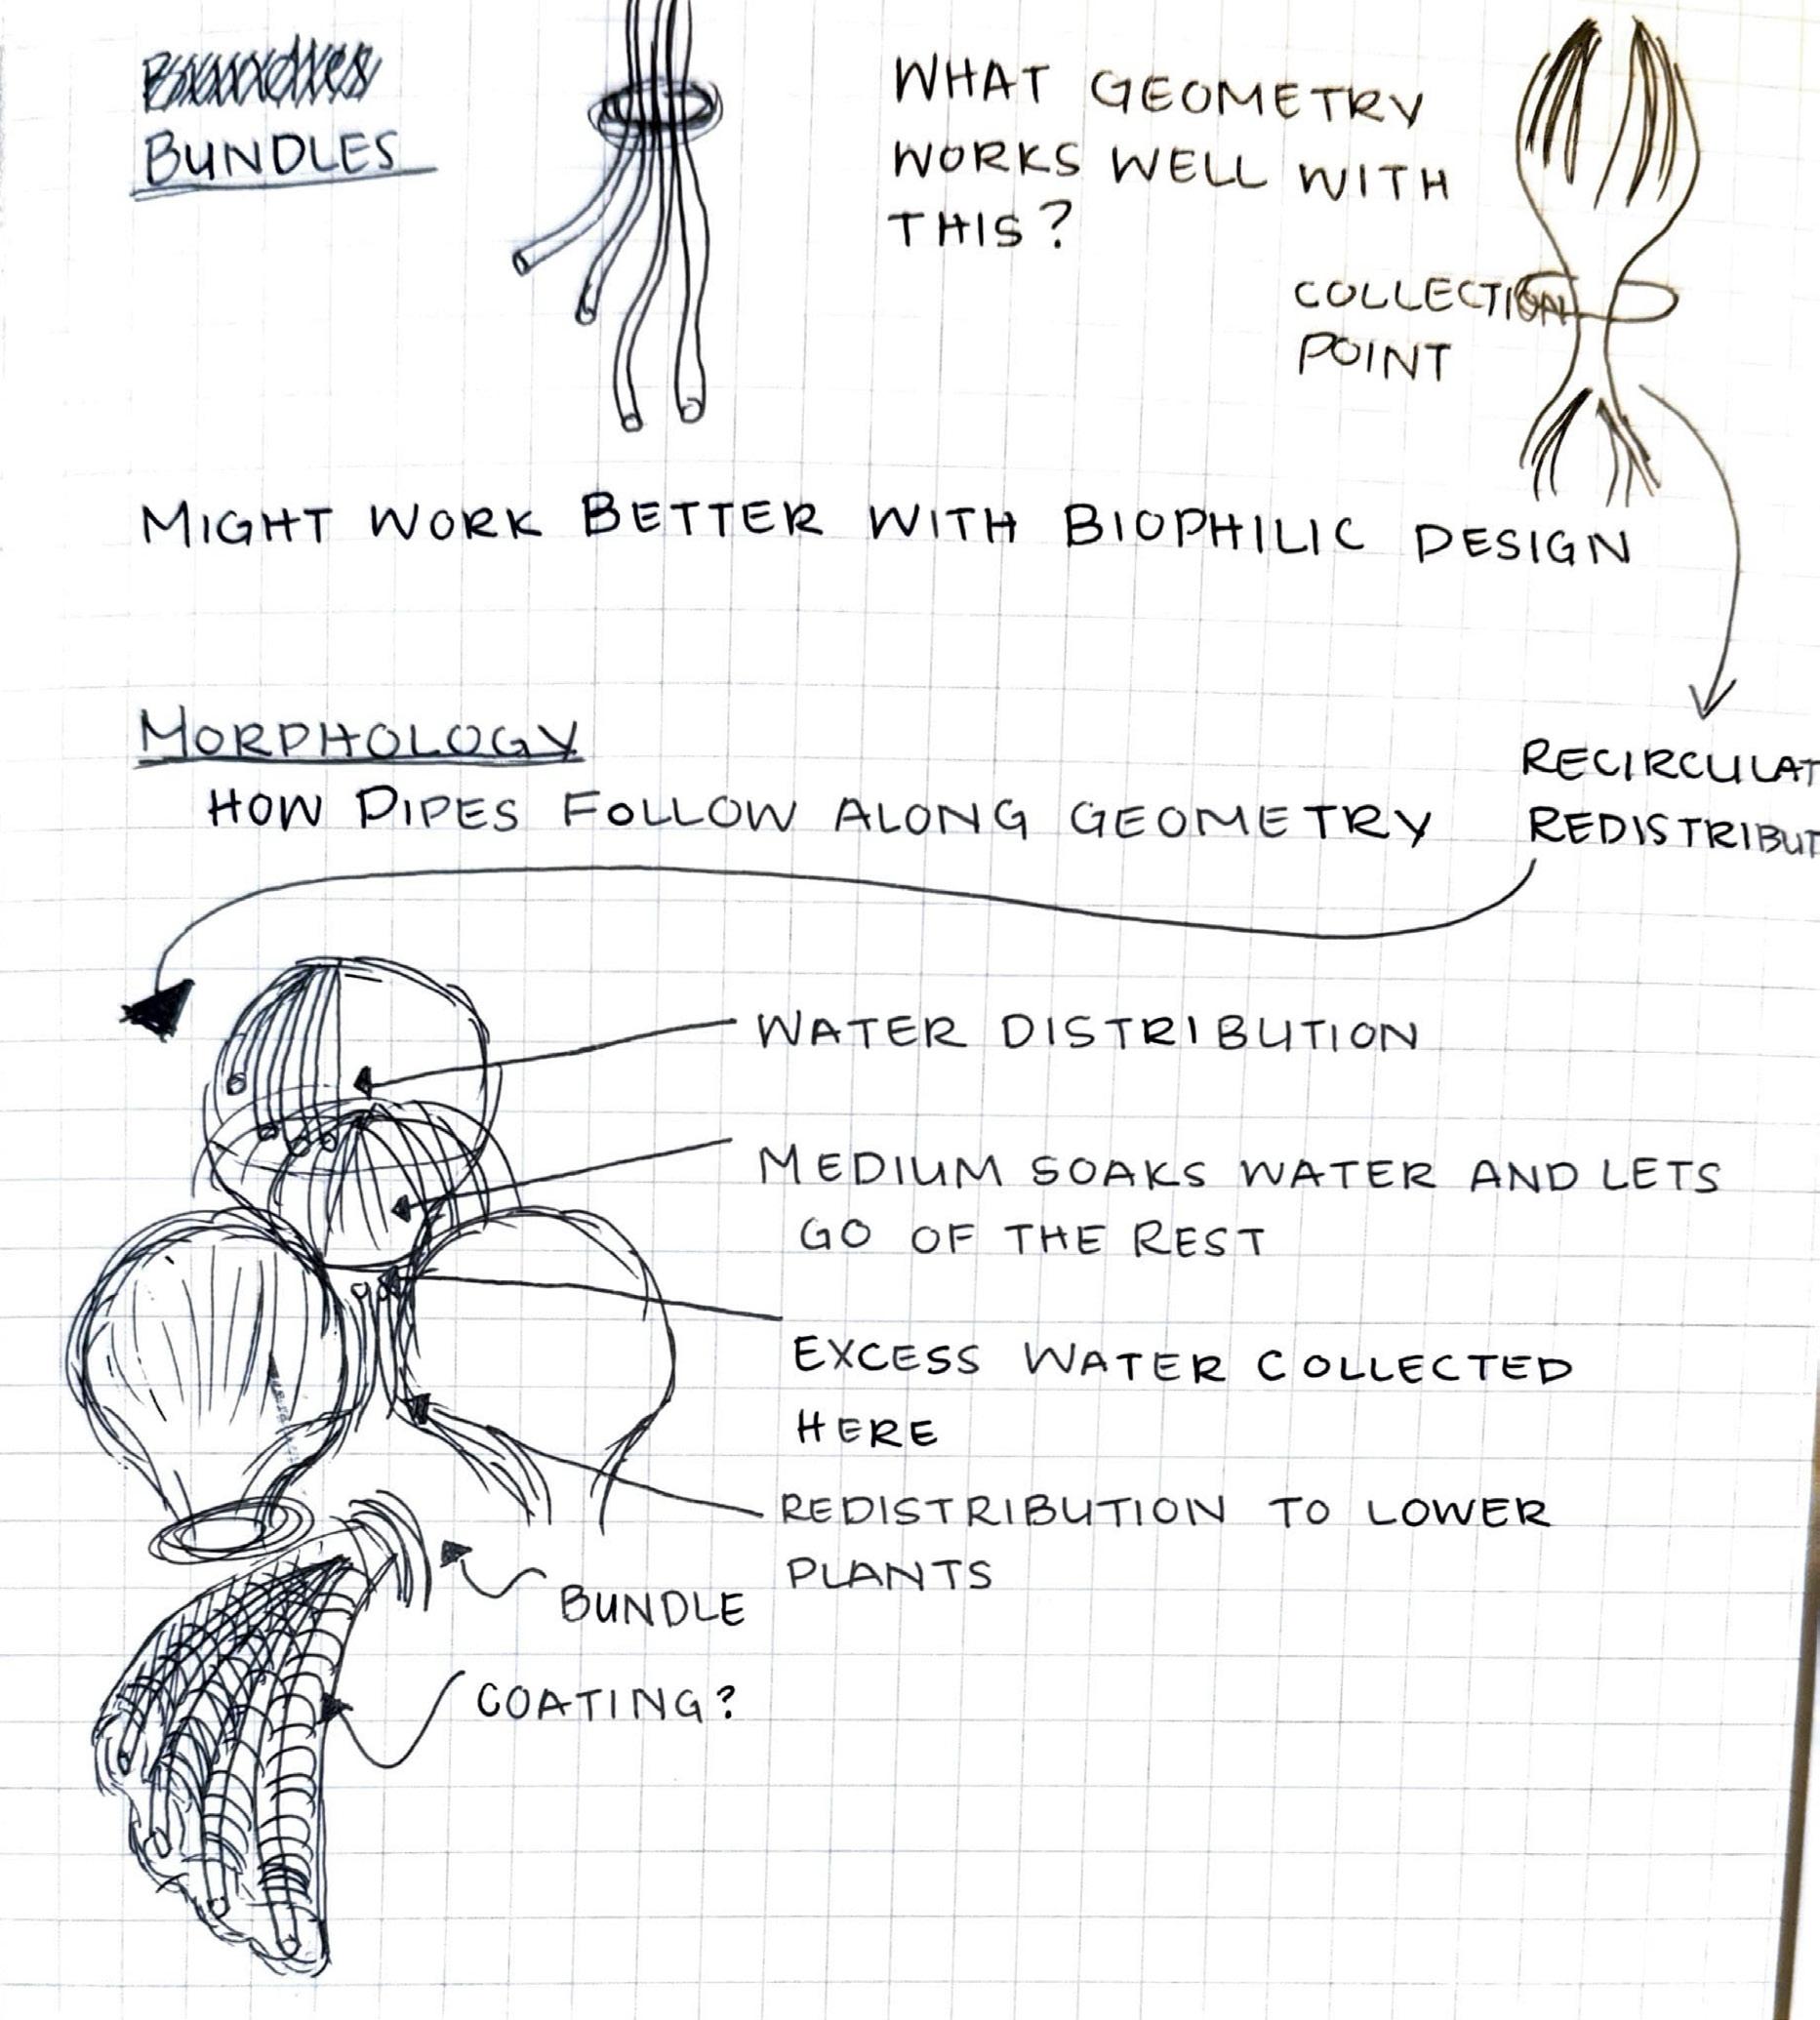 BUNDLES
WHAT GEOMETRY
WORKS WELL WITH
THIS?
COLLECTION
POINT
MIGHT WORK BETTER WITH BIOPHILIC DESIGN
MORPHOLOGY
HOW PIPES FOLLOW ALONG GEOMETRY
RECIRCULAT
REDISTRIBUT
WATER DISTRIBUTION
MEDIUM SOAKS WATER AND LETS
GO OF THE REST
EXCESS WATER COLLECTED
HERE
REDISTRIBUTION TO LOWER
PLANTS
BUNDLE
COATING?